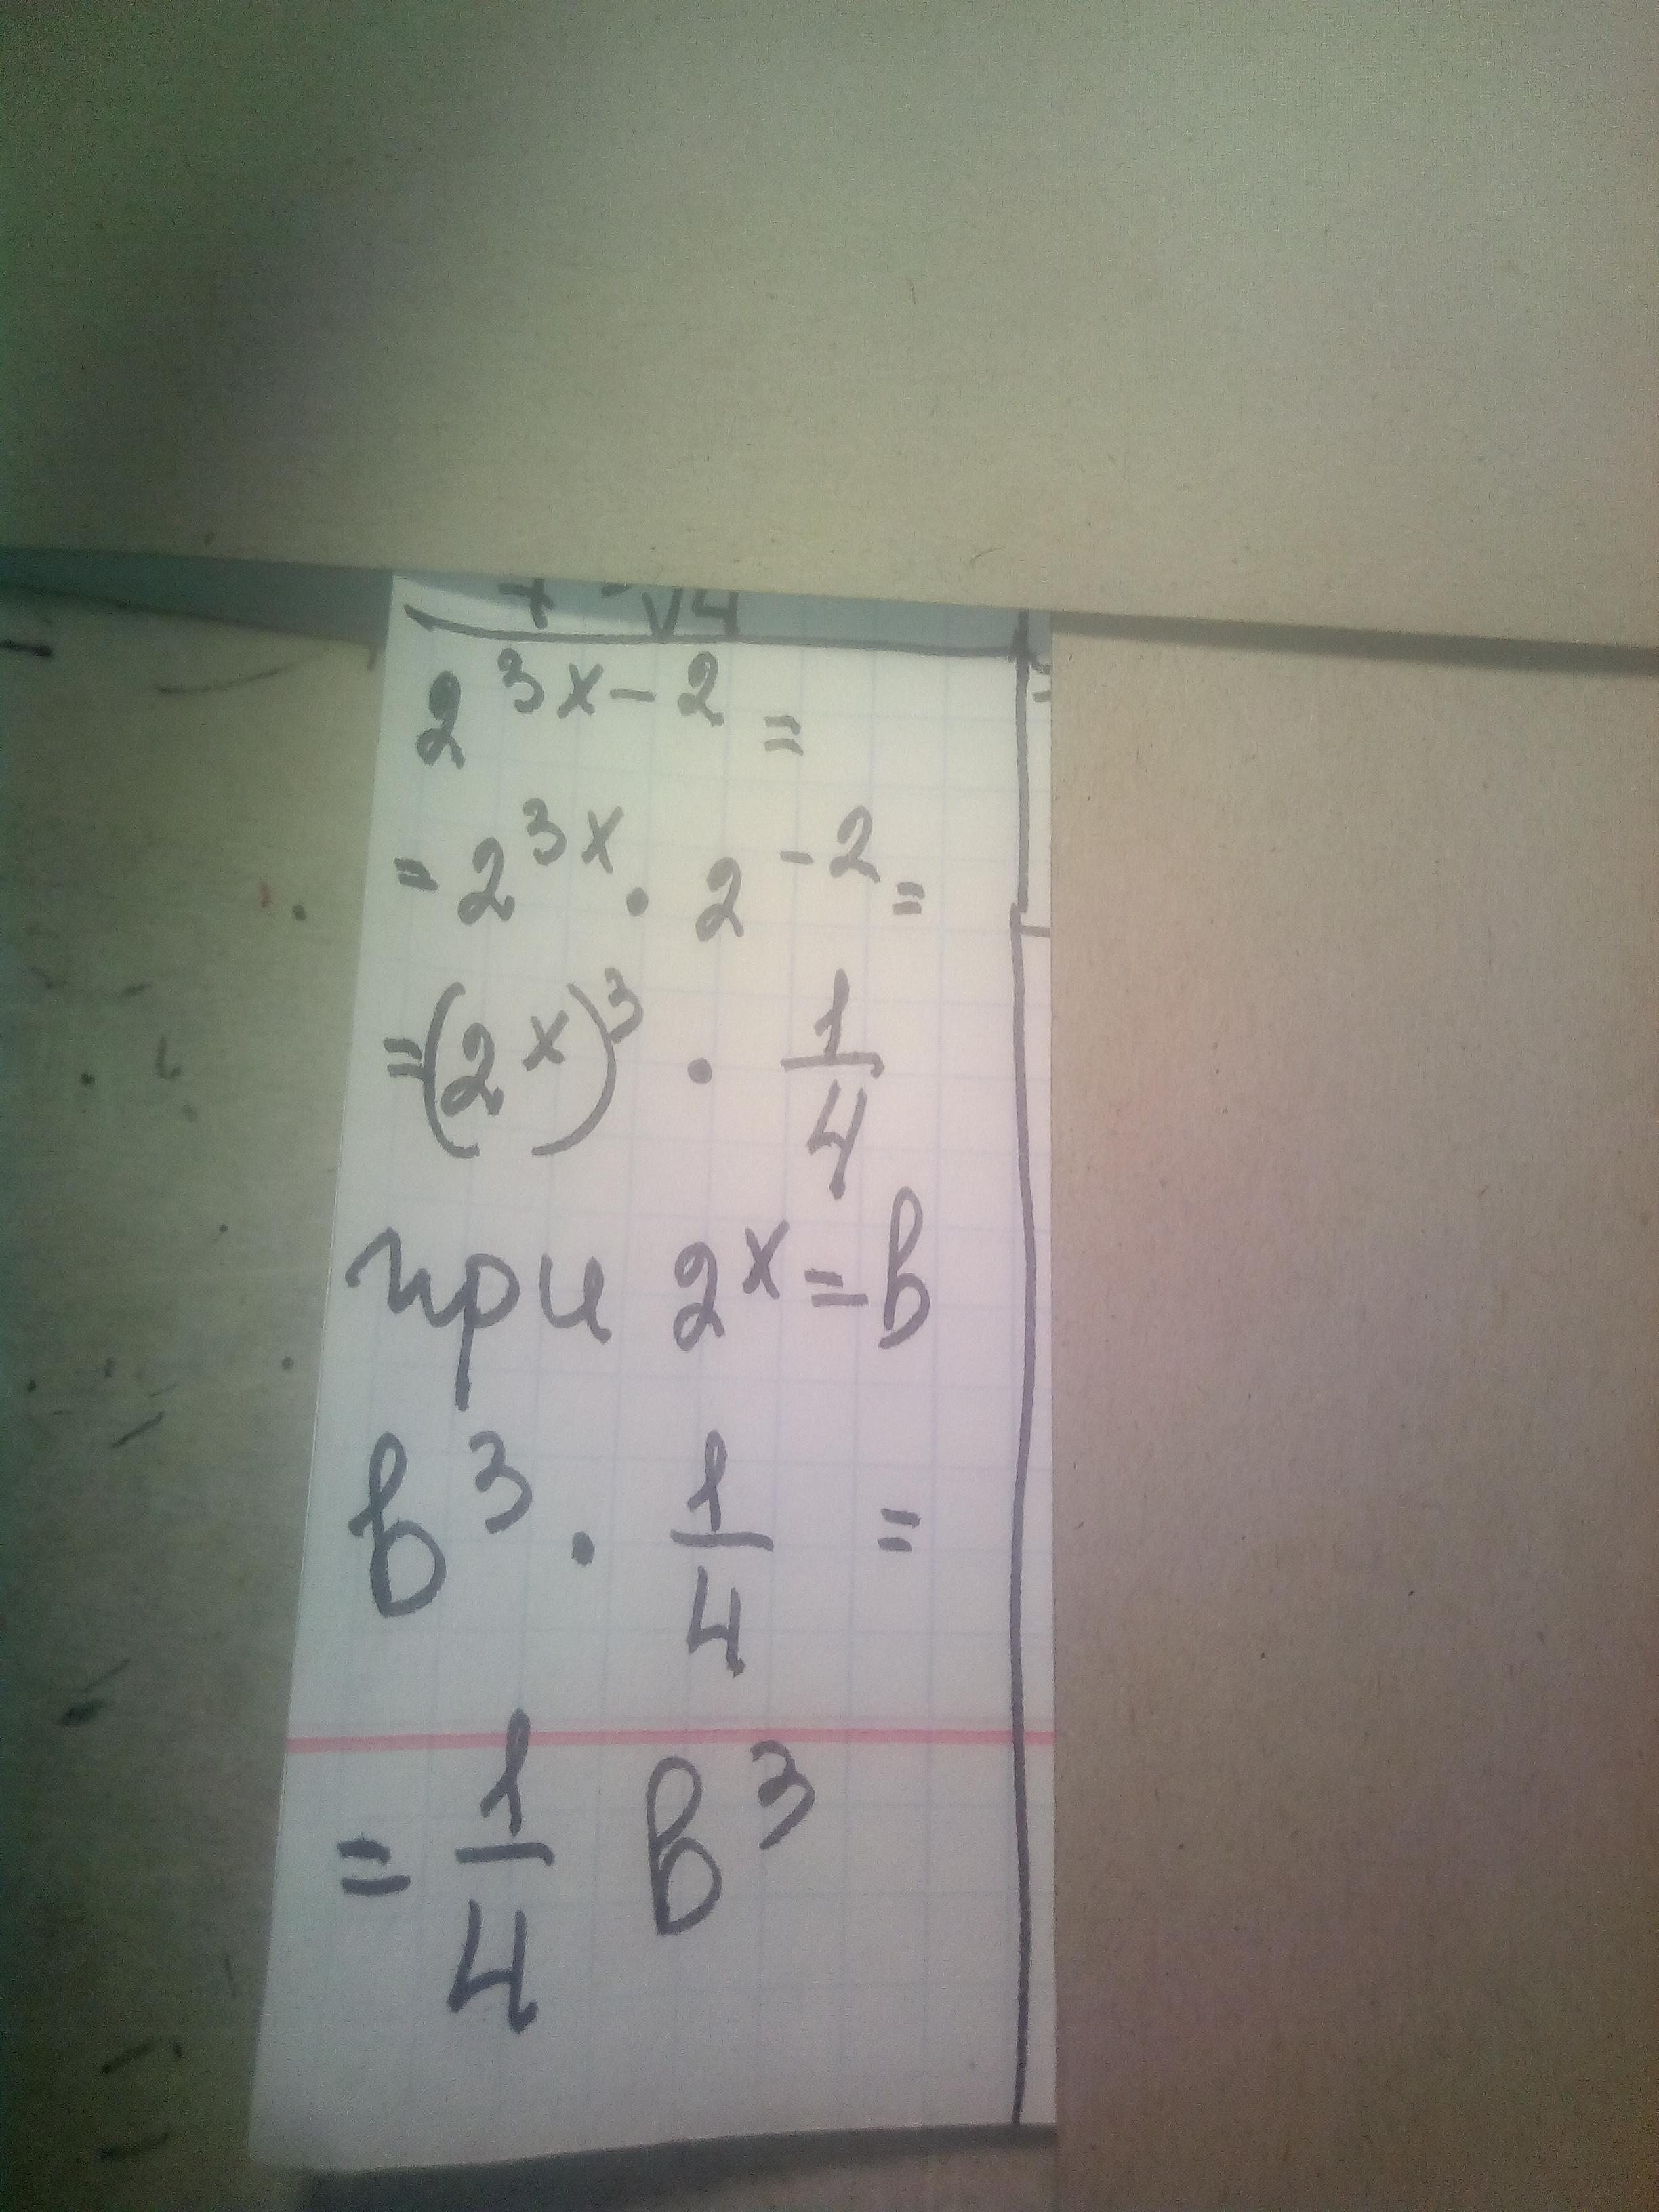 √4
2^{3x-2} =
= 2^{3x} · 2^{-2} =
= (2^x)^3 · 1/4
при 2^x = в
в^3 · 1/4 =
= 1/4 в^3